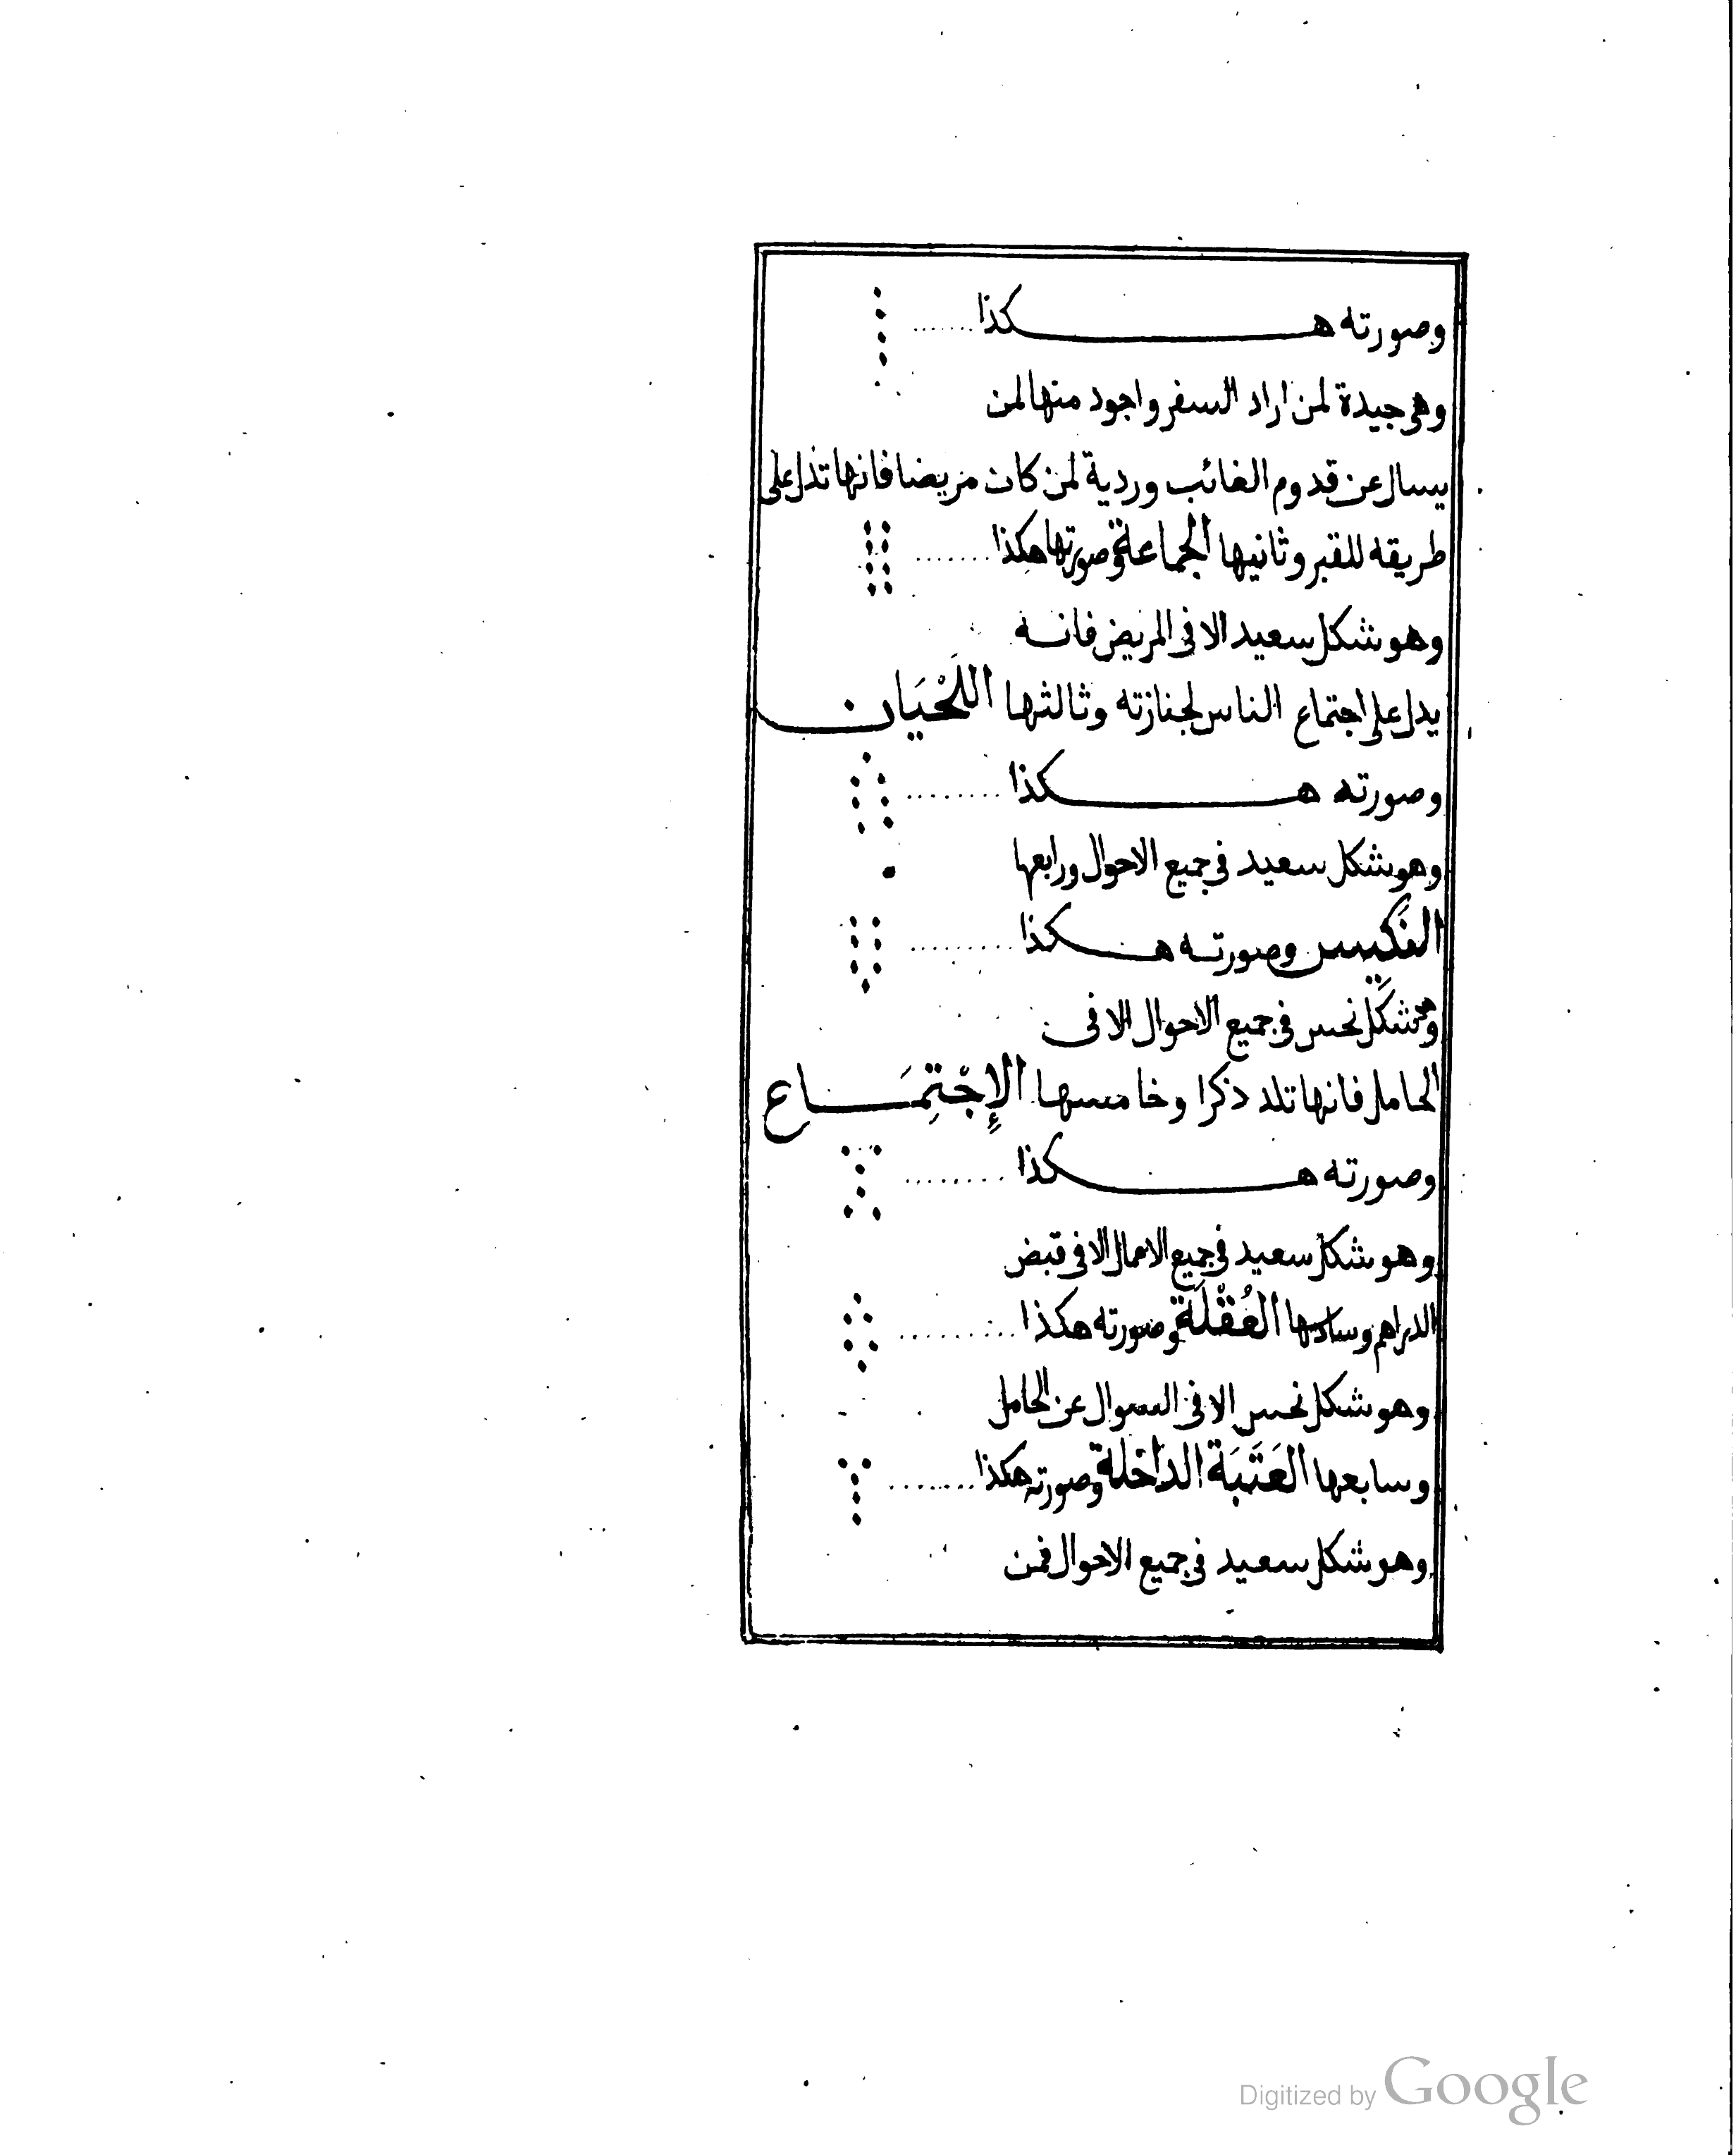 وصورته هكذا
وهى جيدة لمن اراد السفر واجود منها لمن
يسال عن قدوم الغائب وردية لمن كان مريضا فانها تدل على
طريقه للقبر وثانيها الجماعة وصورتها هكذا
وهو شكل سعيد الا فى المريض فانه
يدل على اجتماع الناس لجنازته وثالثها اللَحْيَان
وصورته هكذا
وهو شكل سعيد فى جميع الاحوال ورابعها
النَكِيس وصورته هكذا
وهو شكل نحس فى جميع الاحوال الا فى
الحامل فانها تلد ذكرا وخامسها الإِجْتِمَاع
وصورته هكذا
وهو شكل سعيد فى جميع الاعمال الا فى قبض
الدراهم وسادسها العُقْلَة وصورته هكذا
وهو شكل نحس الا فى السوال عن الحامل
وسابعها العَتَبَة الداخلة وصورته هكذا
وهو شكل سعيد فى جميع الاحوال فمن
Digitized by Google